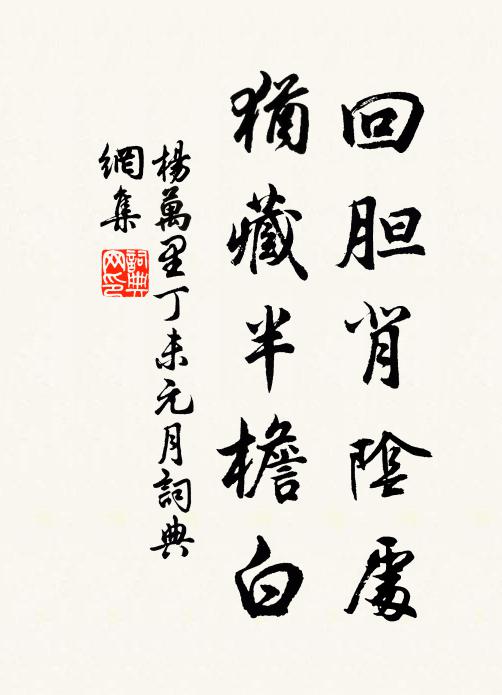 回胆背陰處
猶藏半檐白
楊萬里丁未元月詞典
網集
詞典
网印